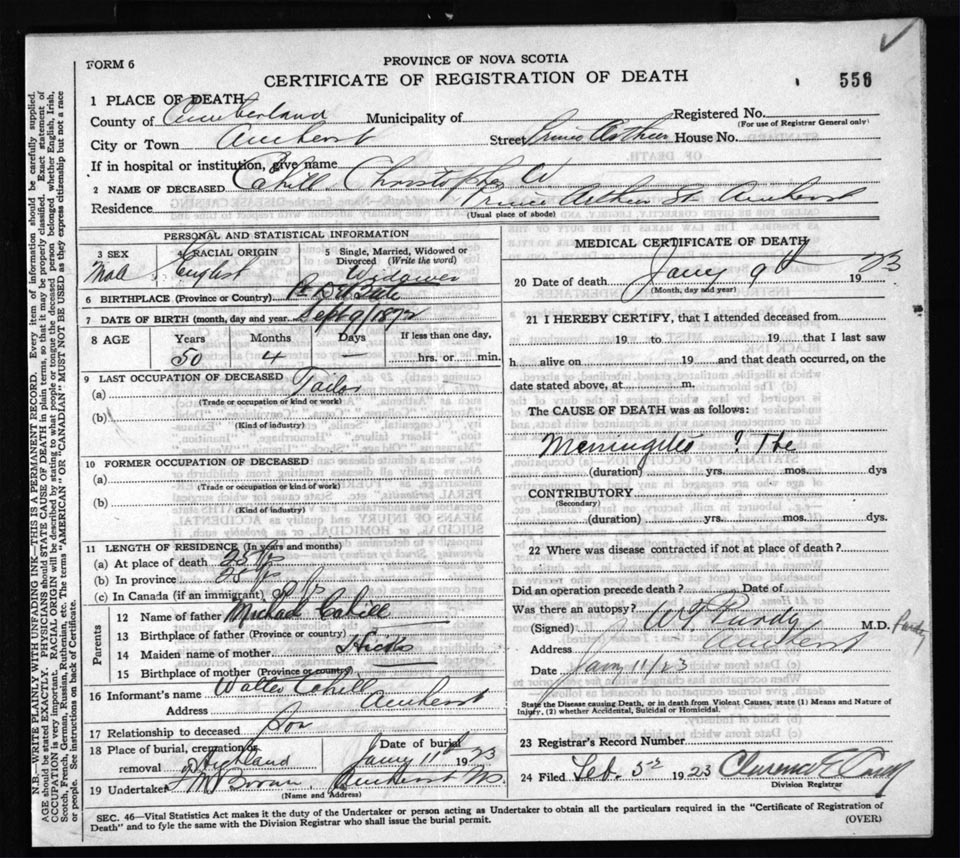 FORM 6
PROVINCE OF NOVA SCOTIA
CERTIFICATE OF REGISTRATION OF DEATH
556
1 PLACE OF DEATH
County of Cumberland Municipality of Registered No.
(For use of Registrar General only)
City or Town Amherst Street Prince Arthur House No.
If in hospital or institution, give name
2 NAME OF DECEASED Cahill Christopher W
Residence Prince Arthur St. Amherst
(Usual place of abode)
PERSONAL AND STATISTICAL INFORMATION
3 SEX 4 RACIAL ORIGIN 5 Single, Married, Widowed or Divorced (Write the word)
Male English Widower
6 BIRTHPLACE (Province or Country)
7 DATE OF BIRTH (month, day and year) Sept 9/1872
8 AGE Years Months Days If less than one day,
50 4 — hrs. or min.
9 LAST OCCUPATION OF DECEASED
(a) Tailor
(Trade or occupation or kind or work)
(b)
(Kind of industry)
10 FORMER OCCUPATION OF DECEASED
(a)
(Trade or occupation or kind of work)
(b)
(Kind of industry)
11 LENGTH OF RESIDENCE (In years and months)
(a) At place of death 25 yrs
(b) In province 25 yrs
(c) In Canada (if an immigrant)
Parents
12 Name of father Michael Cahill
13 Birthplace of father (Province or country)
14 Maiden name of mother Hicks
15 Birthplace of mother (Province or country)
16 Informant's name Walter Cahill
Address Amherst
17 Relationship to deceased Son
18 Place of burial, cremation or removal Highland Date of burial Jany 11th 1923
19 Undertaker Amherst N.S.
(Name and Address)
MEDICAL CERTIFICATE OF DEATH
20 Date of death Jany 9th 1923
(Month, day and year)
21 I HEREBY CERTIFY, that I attended deceased from
19 to 19 that I last saw
h alive on 19 and that death occurred, on the
date stated above, at m.
The CAUSE OF DEATH was as follows:
Meningitis ? Tbc
(duration) yrs. mos. dys
CONTRIBUTORY
(Secondary)
(duration) yrs. mos. dys.
22 Where was disease contracted if not at place of death?
Did an operation precede death? Date of
Was there an autopsy?
(Signed) W T Purdy M.D. Purdy
Address Amherst
Date Jany 11/23
State the Disease causing Death, or in death from Violent Causes, state (1) Means and Nature of
Injury, (2) whether Accidental, Suicidal or Homicidal.
23 Registrar's Record Number
24 Filed Feb. 3rd 1923 Clarence E
Division Registrar
SEC. 46—Vital Statistics Act makes it the duty of the Undertaker or person acting as Undertaker to obtain all the particulars required in the "Certificate of Registration of
Death" and to fyle the same with the Division Registrar who shall issue the burial permit.
(OVER)
N.B.—WRITE PLAINLY WITH UNFADING INK—THIS IS A PERMANENT RECORD. Every item of information should be carefully supplied.
AGE should be stated EXACTLY. PHYSICIANS should STATE CAUSE OF DEATH in plain terms, so that it may be properly classified. Exact statement of
OCCUPATION is very important. RACIAL ORIGIN will be described by stating to what people or tongue the deceased person belonged whether English, Irish,
Scotch, French, German, Russian, Ruthenian, etc. The terms "AMERICAN" OR "CANADIAN" MUST NOT BE USED as they express citizenship but not a race
or people. See instructions on back of Certificate.